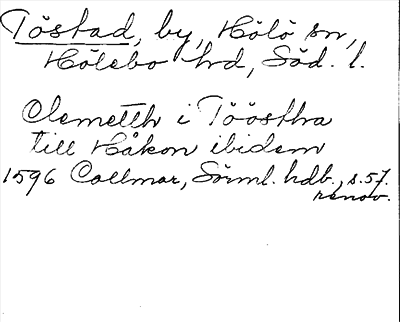 Töstad, by, Hölö sn,
Hölebo hd, Söd. l.
Clemetth i Tööstha
till Håkon ibidem
1596 Collmar, Sörml. hdb., s. 57.
renov.